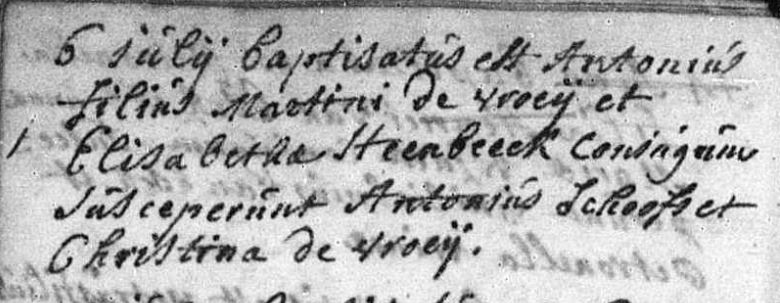 6 julij baptisatus est Antonius
filius Martini de vroeij et
1 Elisabethae Steenbeeck Conjugum
susceperunt Antonius Schoofs et
Christina de vroeij.